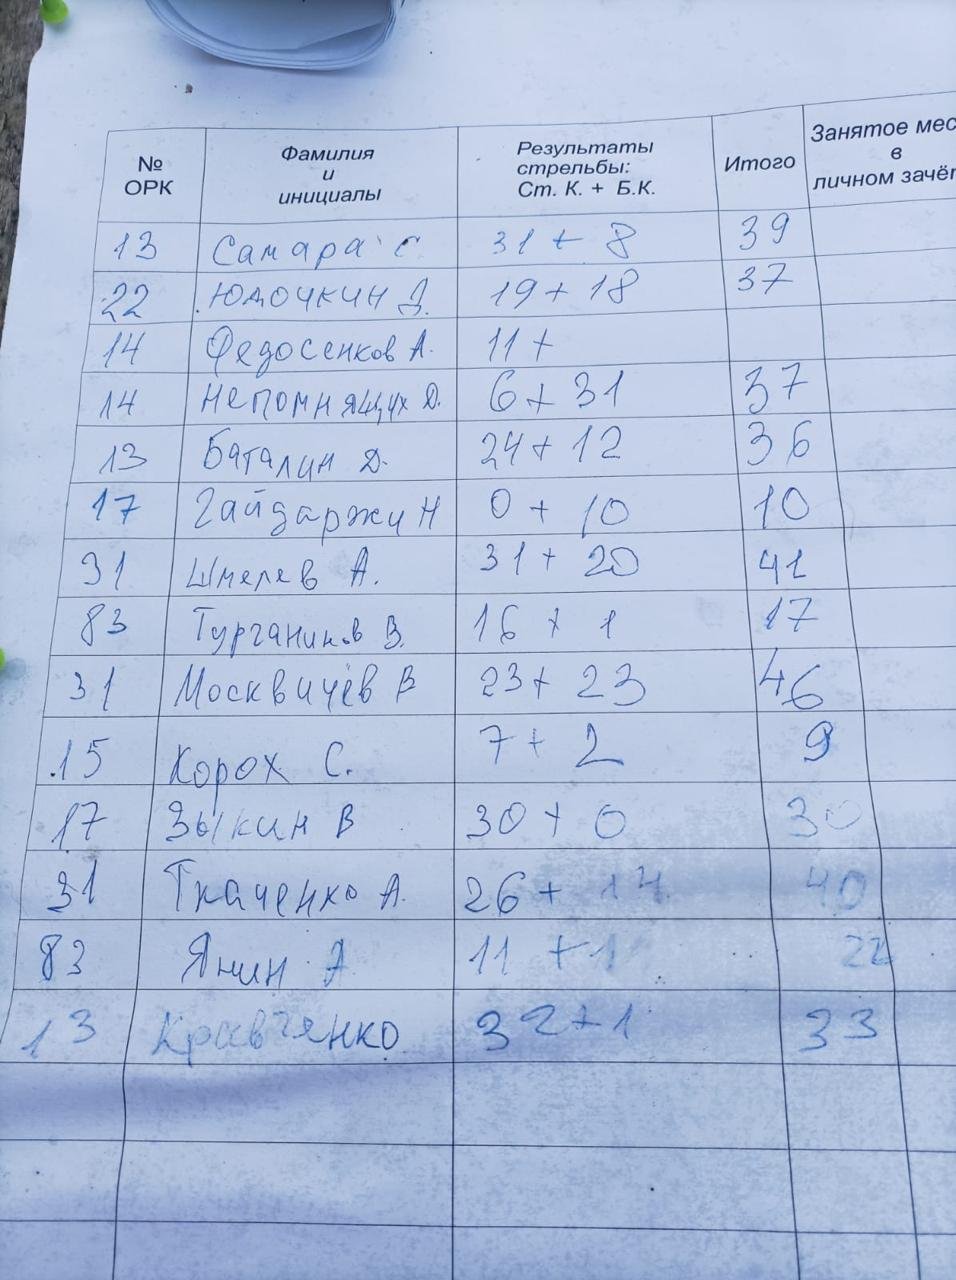 № ОРК Фамилия и инициалы Результаты стрельбы: Ст. К. + Б.К. Итого Занятое мес в личном зачёт
13 Самара С 31 + 8 39
22 Юдочкин Д. 19 + 18 37
14 Федосенков А. 11 +
14 Непомнящих Д. 6 + 31 37
13 Баталин Д. 24 + 12 36
17 Гайдаржи Н 0 + 10 10
31 Шмелев А. 31 + 20 41
83 Турганинов В. 16 + 1 17
31 Москвичёв В 23 + 23 46
15 Корох С. 7 + 2 9
17 Зыкин В 30 + 0 30
31 Ткаченко А. 26 + 14 40
83 Янин А 11 + 11 22
13 Кравченко 32 + 1 33